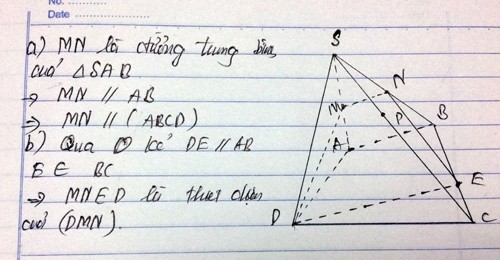 No.
Date
a) MN là đường trung bình
của ΔSAB
→ MN // AB
→ MN // (ABCD)
b) Qua D kẻ DE // AB
E ∈ BC
→ MNED là thiết diện
của (DMN).
S
N
M
P
B
A
E
D
C